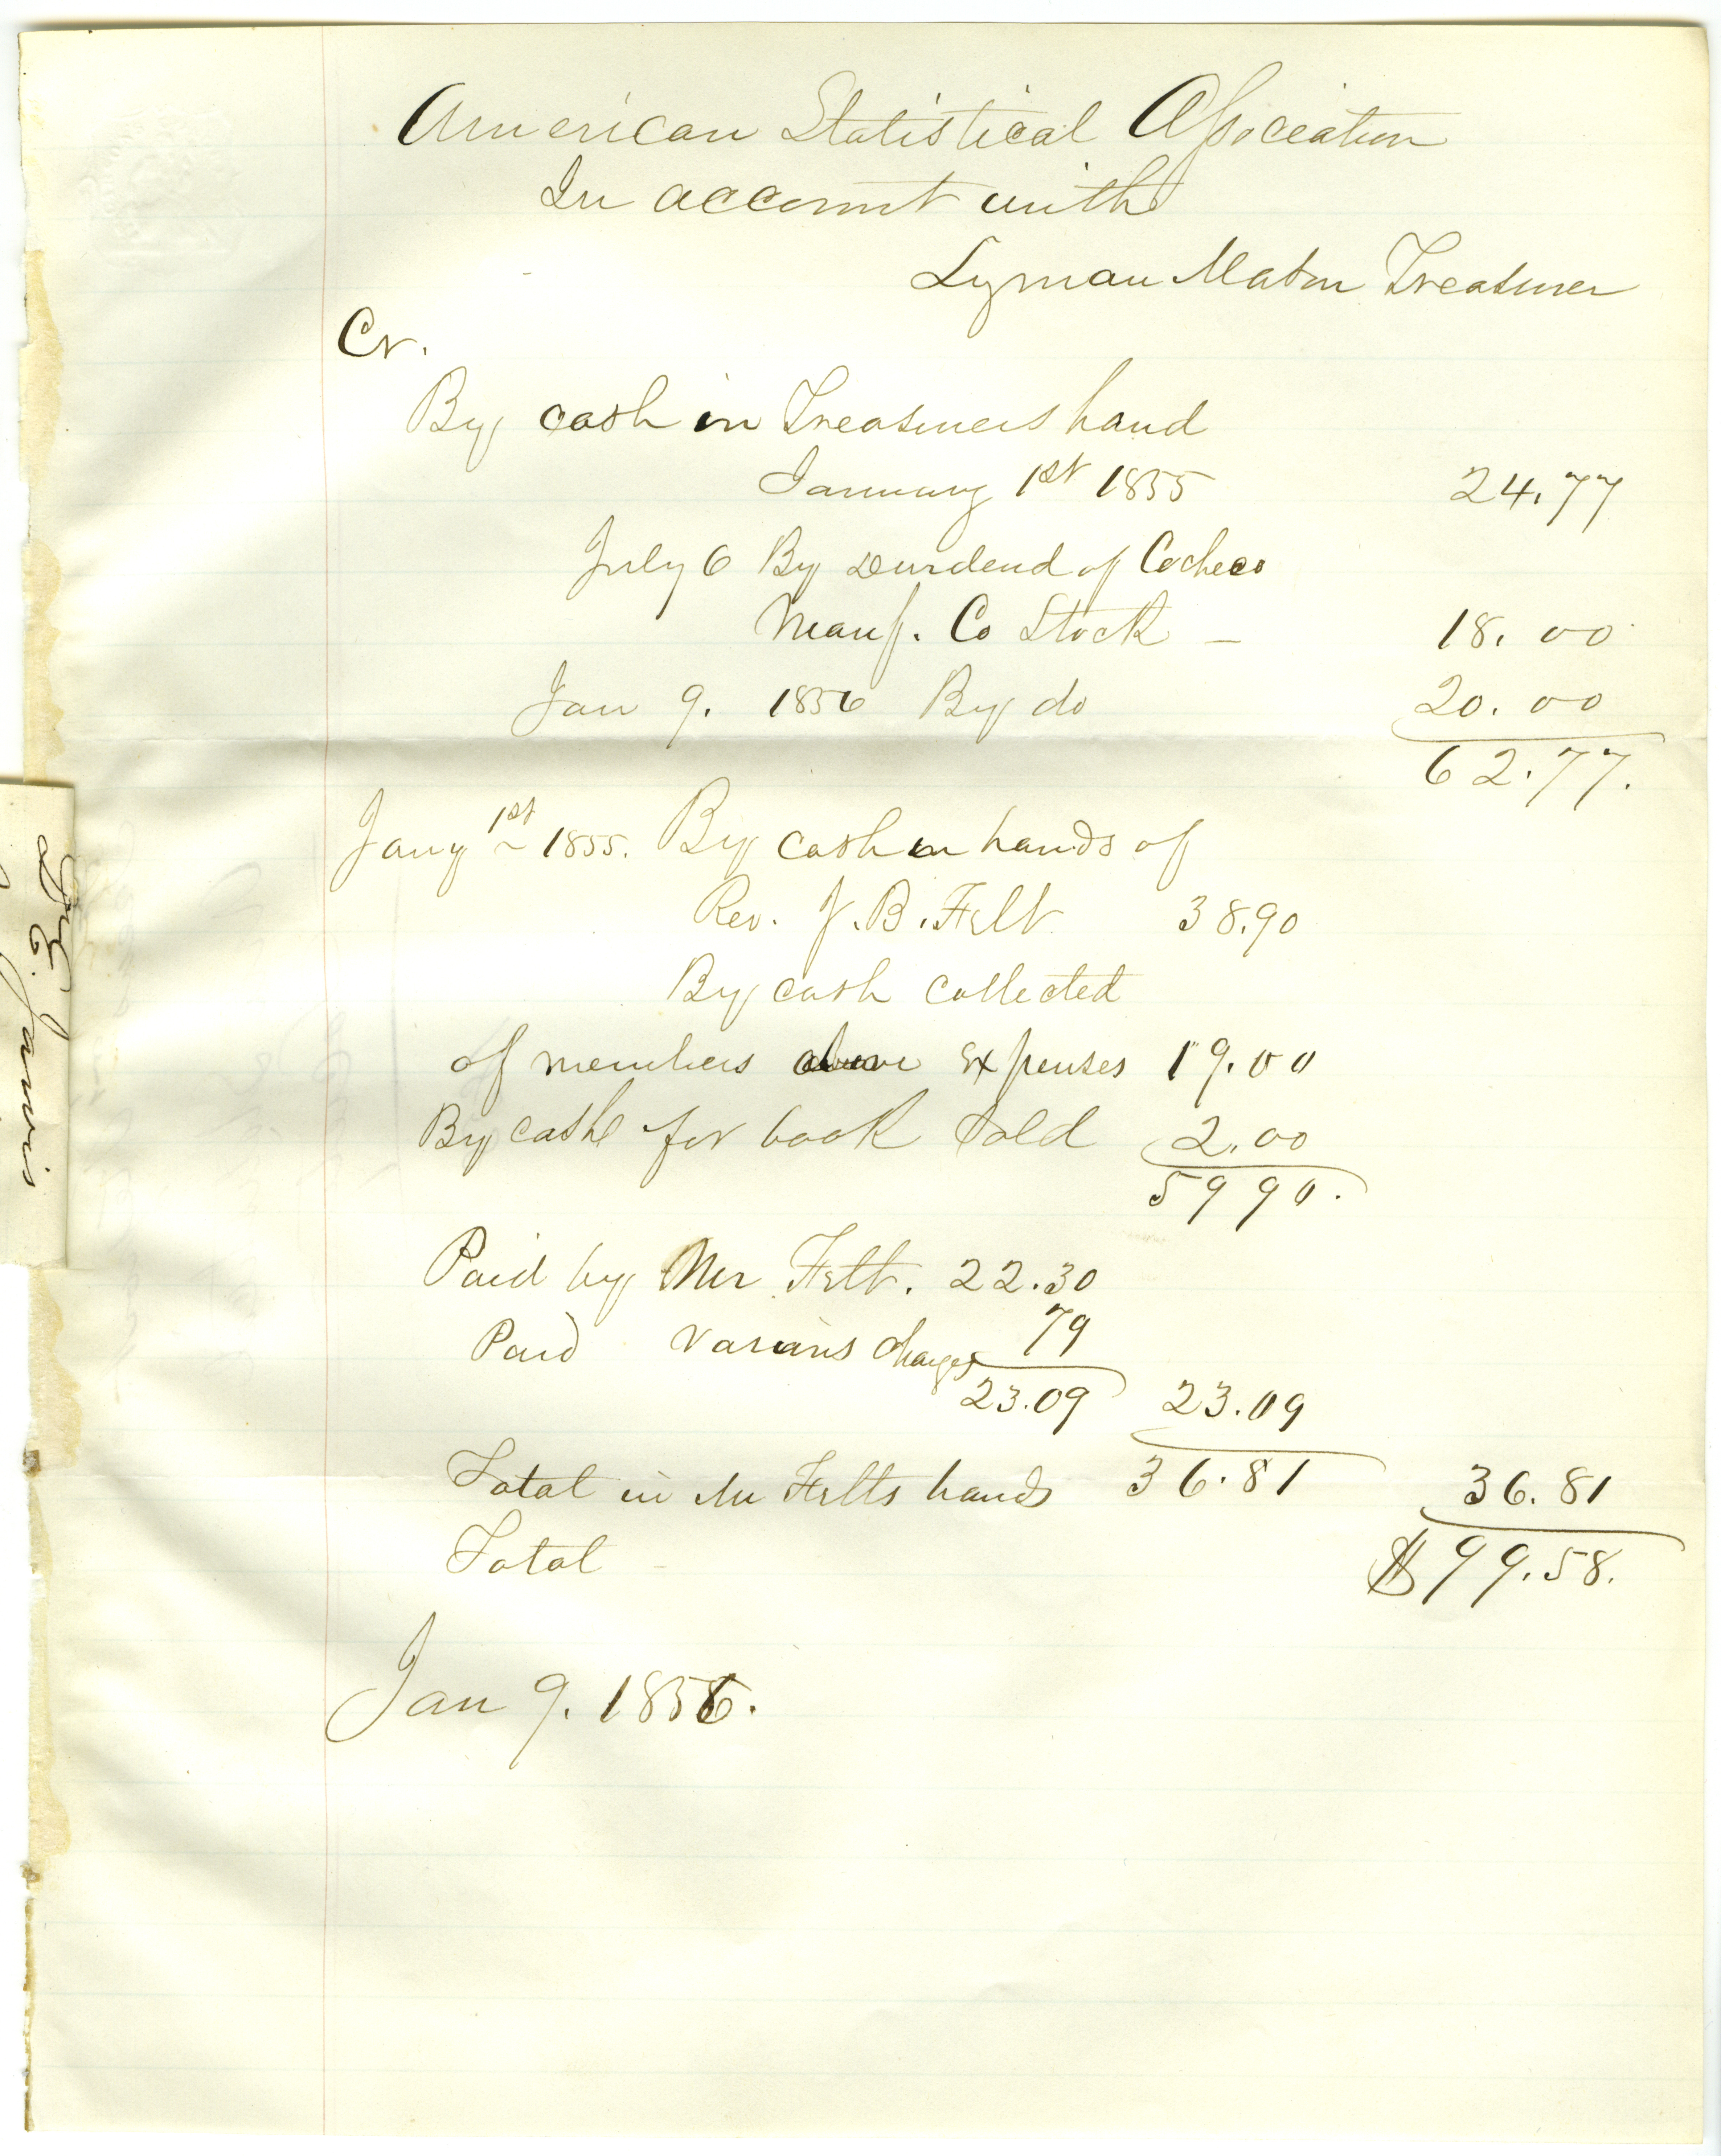 American Statistical Association
In account with
Lyman Mason Treasurer
Cr.
By cash in Treasurers hand
January 1st 1855 24.77
July 6 By Dividend of Cocheco
Manf. Co Stock – 18.00
Jan 9. 1856 By do 20.00
62.77.
Jany 1st 1855. By cash in hands of
Rev. J. B. Felt 38.90
By cash collected
of members above expenses 19.00
By cash for book sold 2.00
59 90.
Paid by Mr Felt. 22.30
Paid various charges 79
23.09 23.09
Total in Mr Felts hands 36.81 36.81
Total $99.58.
Jan 9. 1856.
Dr E. Jarvis